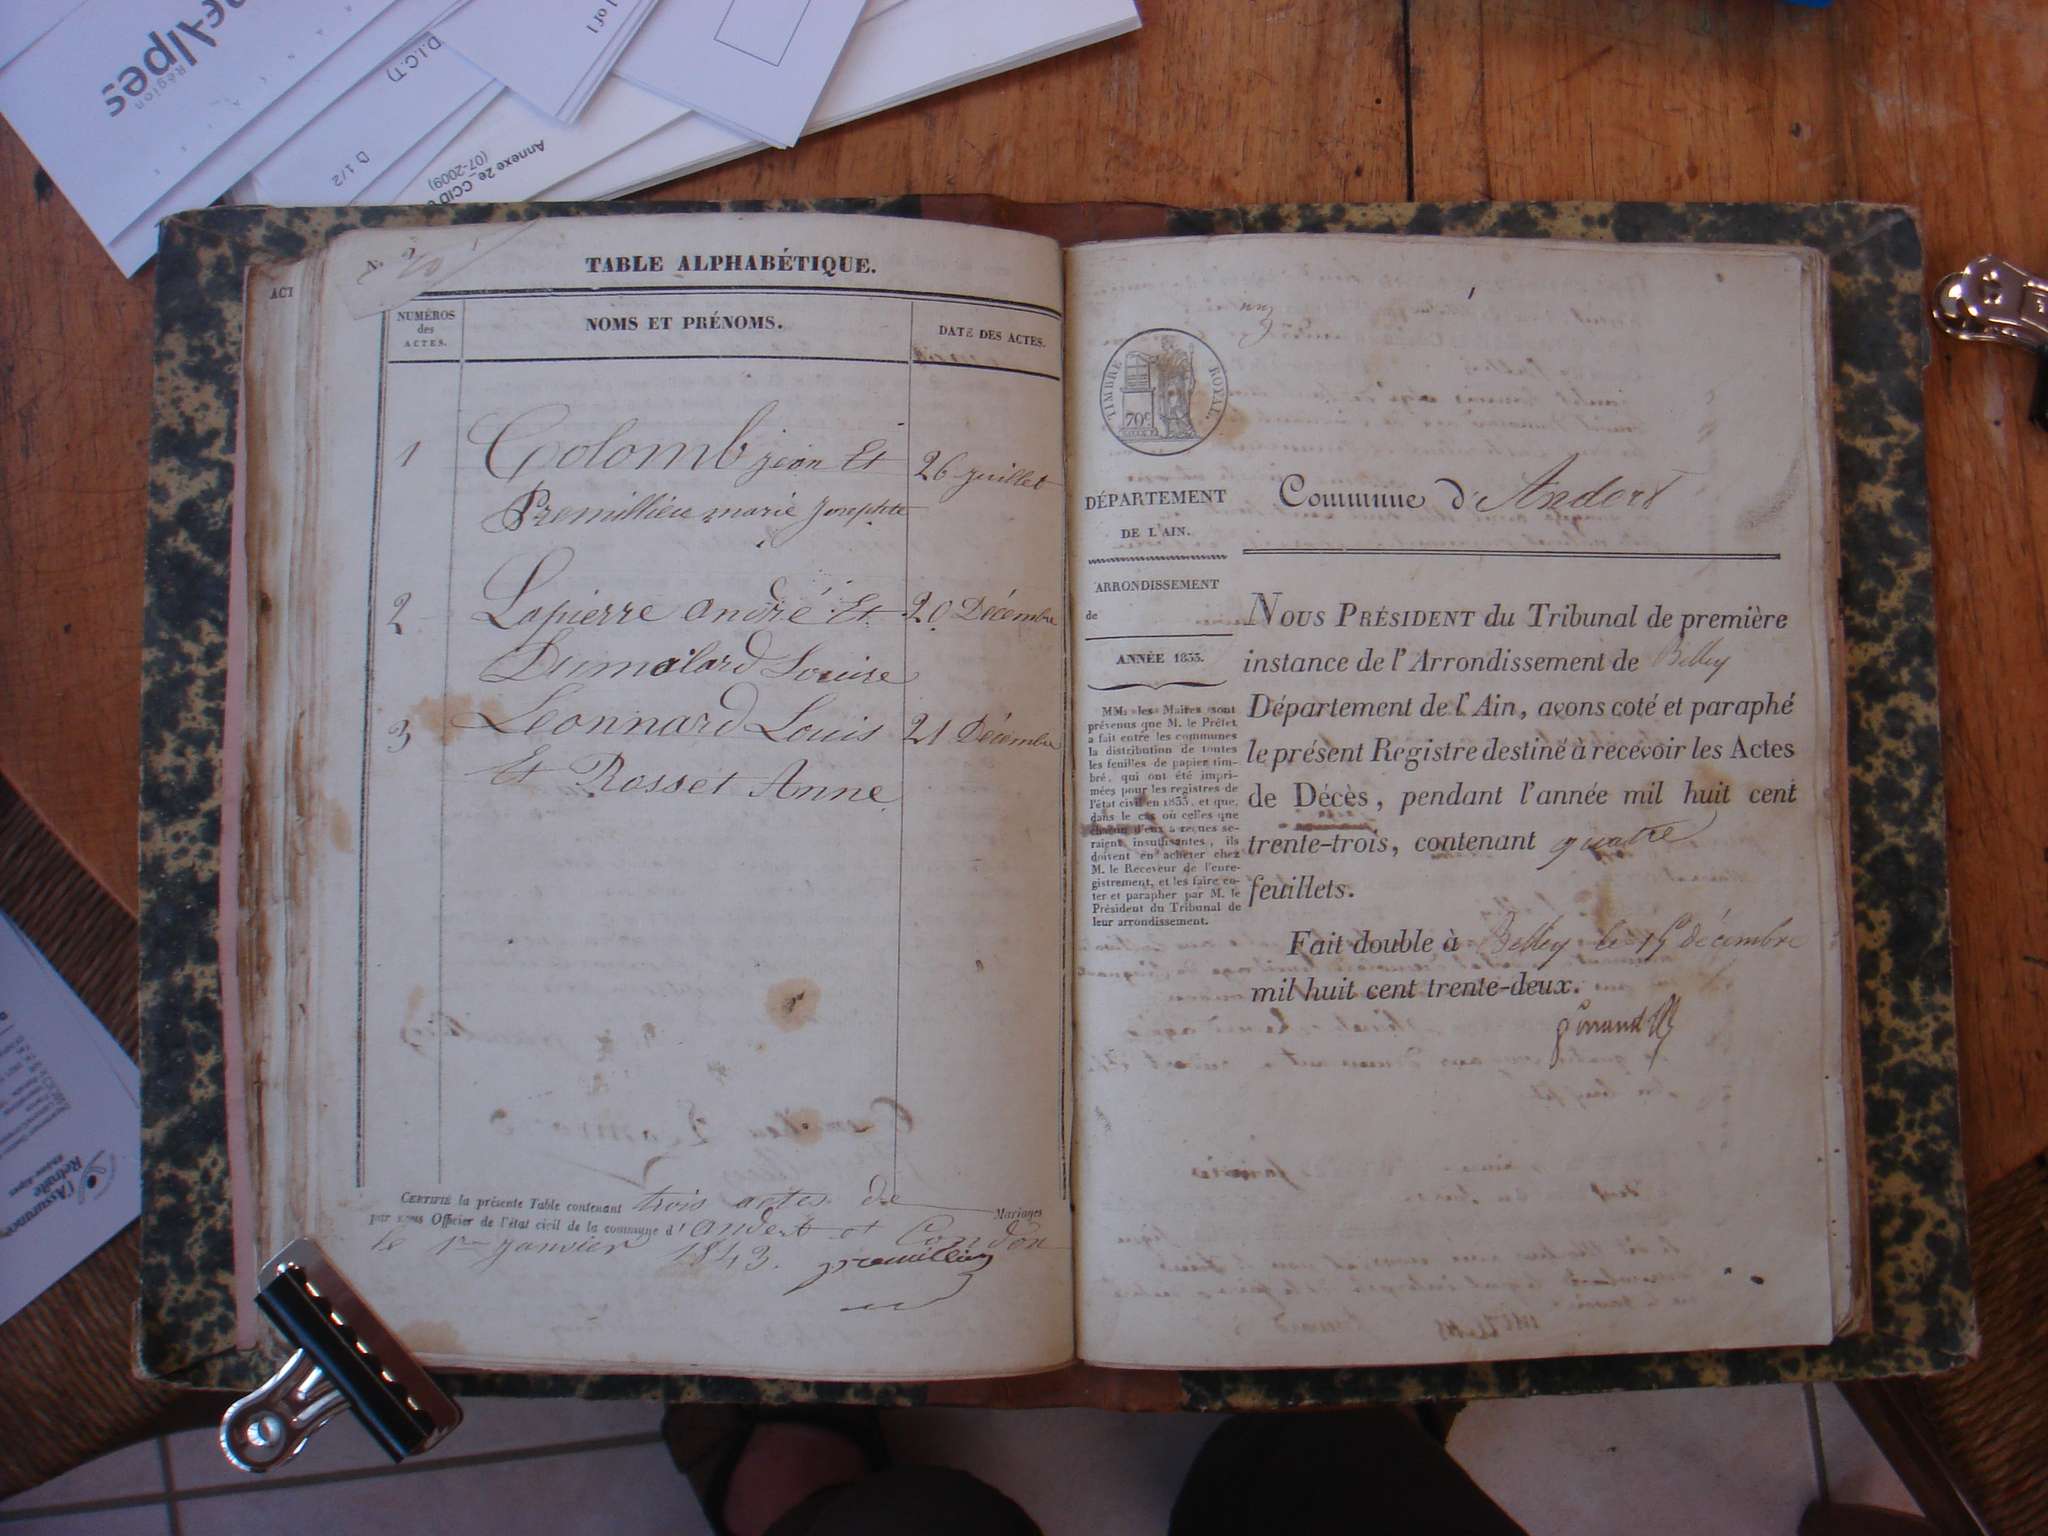 Alpes
Région
D.I.C.T)
1 of 1
D 1/2
Annexe 2e_CCID
(07-2009)
ACT
TABLE ALPHABÉTIQUE.
NUMÉROS
des
ACTES.
NOMS ET PRÉNOMS.
DATE DES ACTES.
1 Colomb jean Et 26 juillet
Premillieu marie Josephte
2 Lapierre andré Et 20 Décembre
Dumolard Louise
3 Leonnard Louis 21 Décembre
Et Rosset Anne
CERTIFIÉ la présente Table contenant trois actes de Mariages
par nous Officier de l'état civil de la commune d'andert et Condon
le 1er janvier 1843. premillieu
TIMBRE ROYAL
70c
DÉPARTEMENT
DE L'AIN.
ARRONDISSEMENT
de
ANNÉE 1833.
MM. les Maires sont
prévenus que M. le Préfet
a fait entre les communes
la distribution de toutes
les feuilles de papier tim-
bré, qui ont été impri-
mées pour les registres de
l'état civil en 1833, et que,
dans le cas où celles que
chacun d'eux a reçues se-
raient insuffisantes, ils
doivent en acheter chez
M. le Receveur de l'enre-
gistrement, et les faire co-
ter et parapher par M. le
Président du Tribunal de
leur arrondissement.
Commune d'Andert
NOUS PRÉSIDENT du Tribunal de première
instance de l'Arrondissement de Belley
Département de l'Ain, avons coté et paraphé
le présent Registre destiné à recevoir les Actes
de Décès, pendant l'année mil huit cent
trente-trois, contenant quatre
feuillets.
Fait double à Belley le 15 décembre
mil huit cent trente-deux.
l'Assurance
Retraite